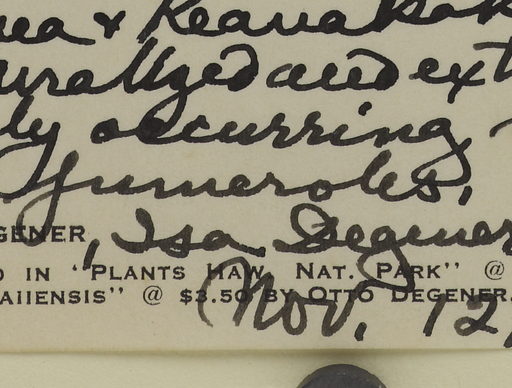 & Keanakak
uralized and ext
ly occurring
fumeroles,
GENER, Isa Degener
D IN "PLANTS HAW. NAT. PARK" @
AIIENSIS" @ $3.50 BY OTTO DEGENER.
Nov. 12,